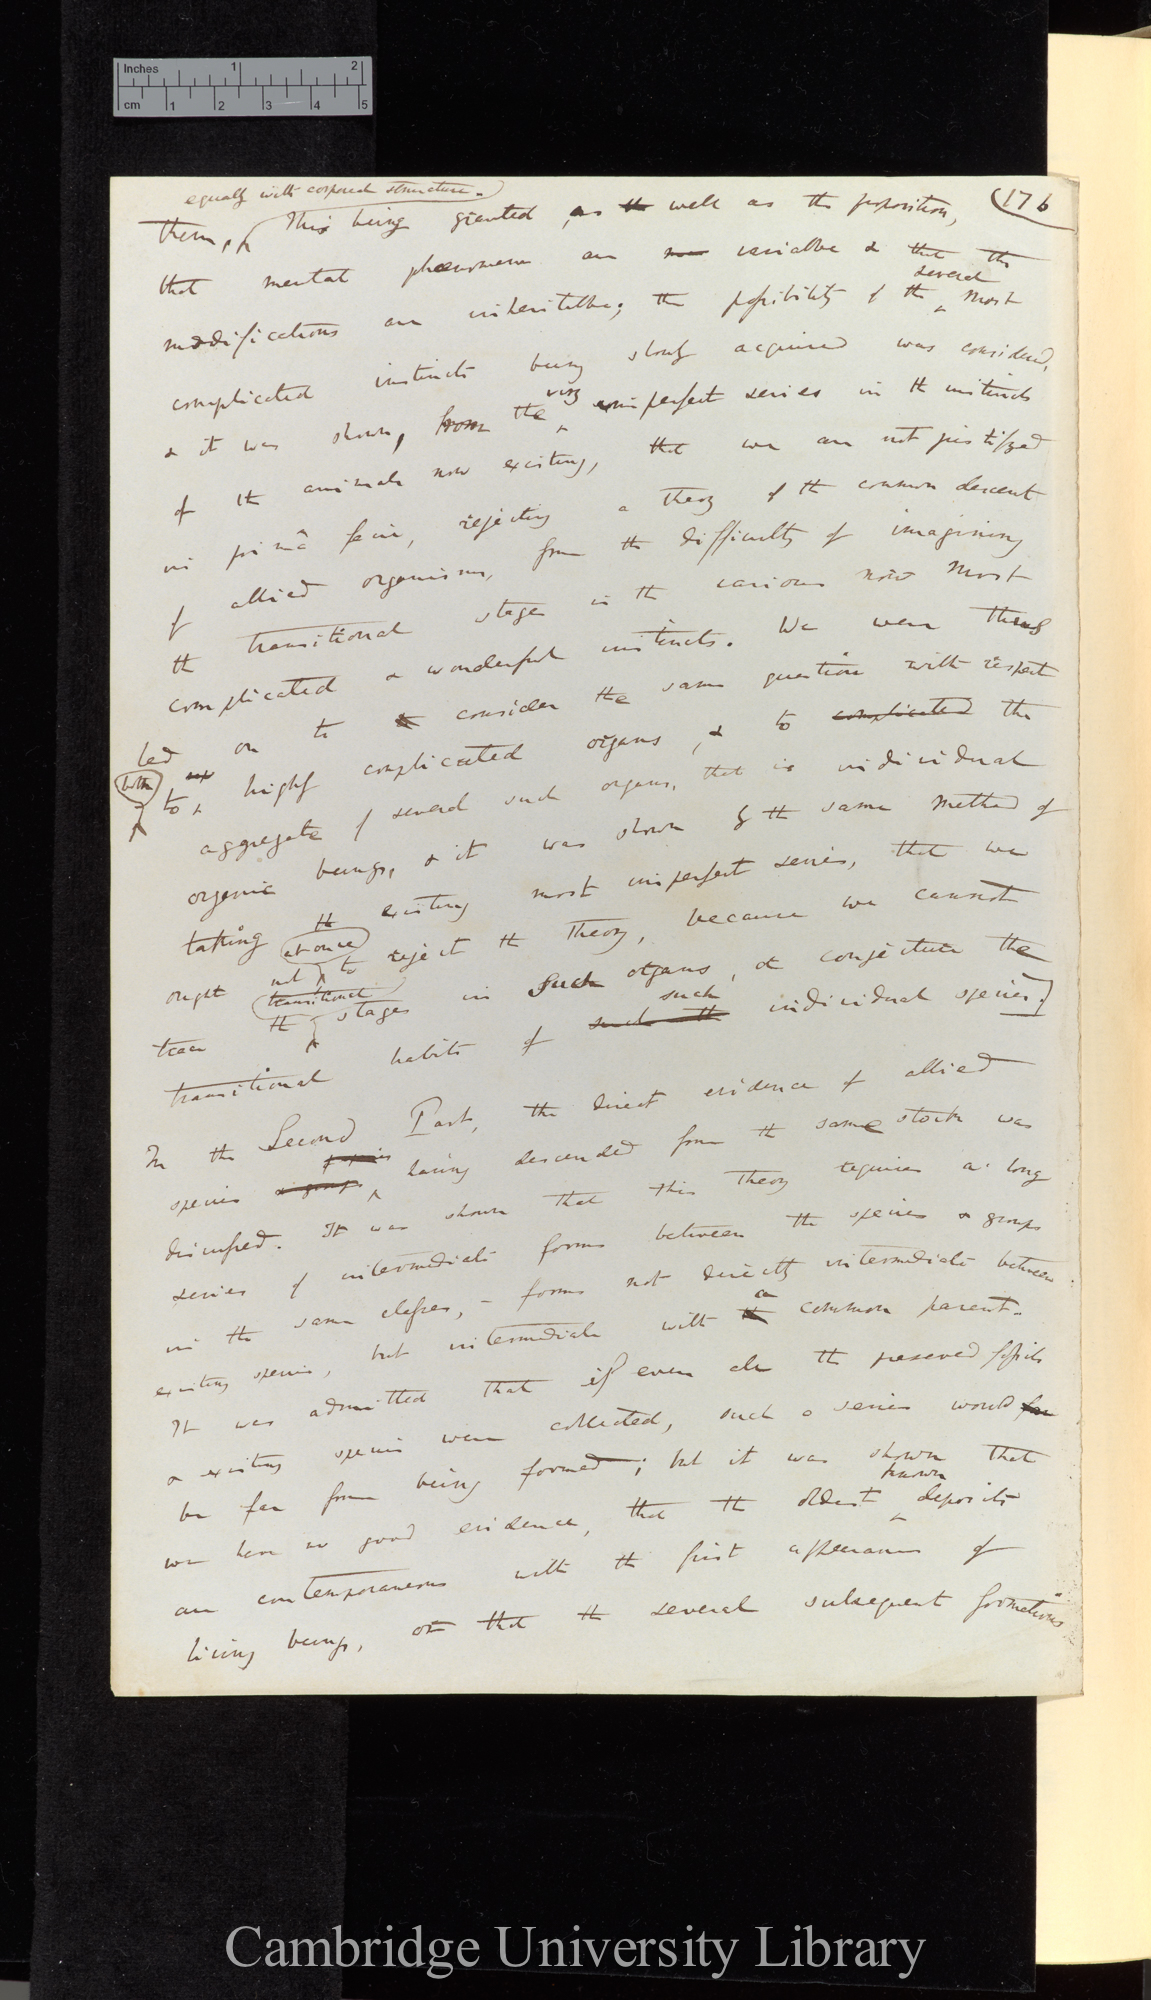 Inches 1 2
cm 1 2 3 4 5
176
equally with corporeal structure.
them, This being granted, as well as the proposition,
that mental phenomena are variable & that the
modifications are inheritable; the possibility of the several most
complicated instincts being slowly acquired was considered,
& it was shown, from the very imperfect series in the instincts
of the animals now existing, that we are not justifyed
in primâ facie, rejecting a theory of the common descent
of allied organisms, from the difficulty of imagining
the transitional stages in the various now most
complicated & wonderful instincts. We were thus
led on to consider the same question with respect
both to highly complicated organs, & to complicated the
aggregate of several such organs, that is individual
organic beings, & it was shown by the same method of
taking the existing most imperfect series, that we
ought not at once to reject the theory, because we cannot
trace the transitional stages in such organs, or conjecture the
transitional habits of such the such individual species.
In the Second Part, the direct evidence of allied
species & groups having descended from the same stock was
discussed. It was shown that this theory requires a long
series of intermediate forms between the species & groups
in the same classes, – forms not directly intermediate between
existing species, but intermediate with a common parent.
It was admitted that if even all the preserved fossils
& existing species were collected, such a series would far
be far from being formed; but it was shown that
we have no good evidence, that the oldest known deposits
are contemporaneous with the first appearance of
living beings, or that the several subsequent formations
Cambridge University Library